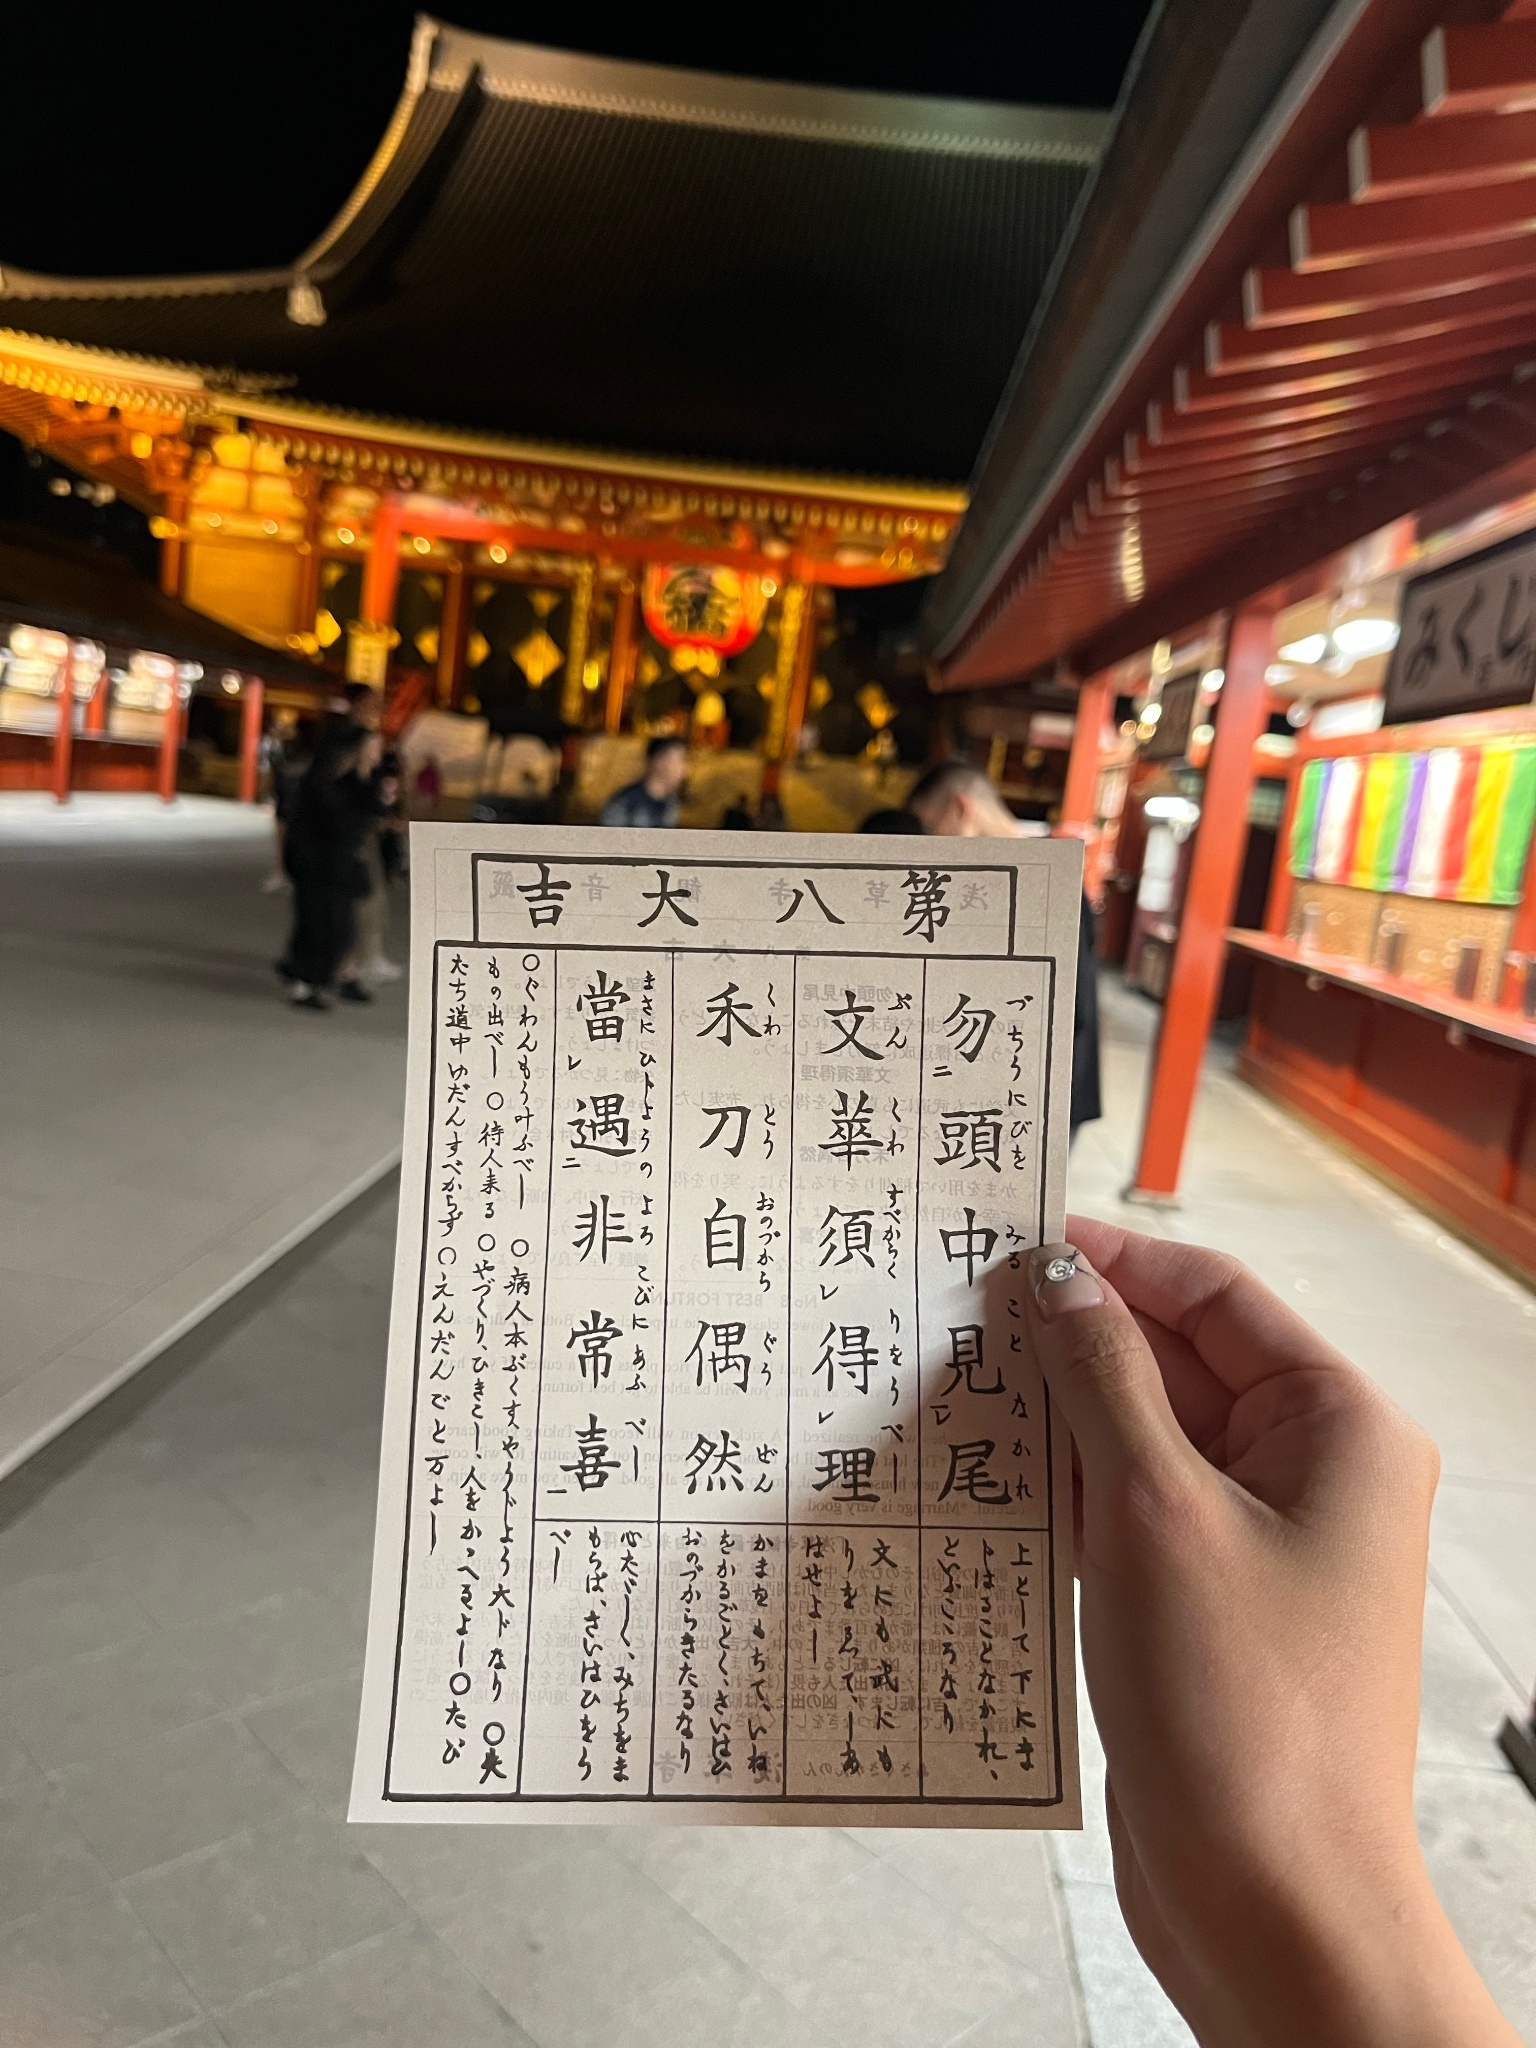 第八大吉
勿頭中見尾
づちうにびを みる こと なかれ
文華須得理
ぶん くわ すべからく りを うべし
禾刀自偶然
くわ とう おのづから ぐう ぜん
當遇非常喜
まさに ひじょうの よろこびに あふ べし
上として下にま
じはることなかれ、
といふこころなり
文にも武にも
りをゑて、しあ
はせよし
かまをもちて、いね
をかるごとく、さいはひ
おのづからきたるなり
心たゞしく、みちをま
もらば、さいはひをう
べし
〇ぐわんもう叶ふべし 〇病人本ぶくすやうじよう大じなり 〇失
もの出べし 〇待人来る 〇やづくり、ひきこし、人をかゝへるよし〇たび
たち道中ゆだんすべからず〇えんだんごと万よし
みくじ